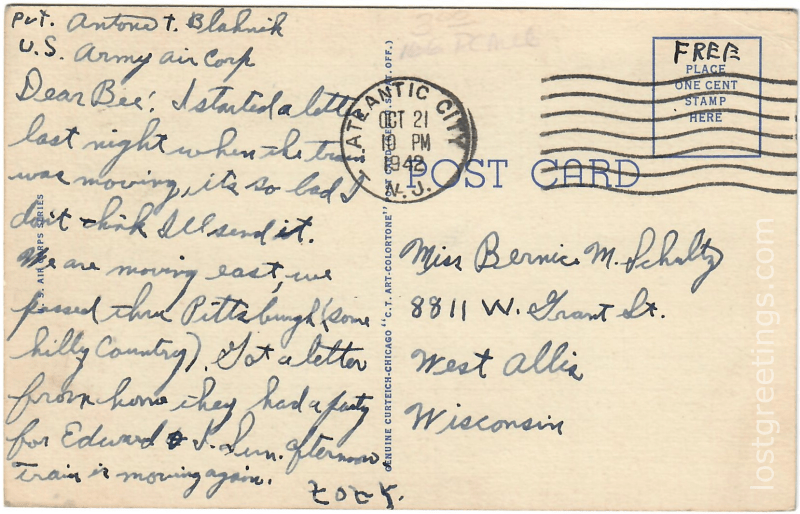 Pvt. Antone t. Blahnik
U.S. Army air Corp
Dear Bee: I started a lett
last night when the tra
was moving, it's so bad I
don't think I'll send it.
We are moving east, we
passed thru Pittsburgh (some
hilly Country). Got a letter
from home they had a party
for Edward & I. Sun. afternoon
train is moving again.
S. AIR CORPS SERIES
GENUINE CURTEICH-CHICAGO "C.T. ART-COLORTONE" POST CARD (REG. U.S. PAT. OFF.)
ATLANTIC CITY
OCT 21
10 PM
1942
N.J.
POST CARD
FREE
PLACE
ONE CENT
STAMP
HERE
Miss Bernice M. Schultz
8811 W. Grant St.
West Allis
Wisconsin
lostgreetings.com